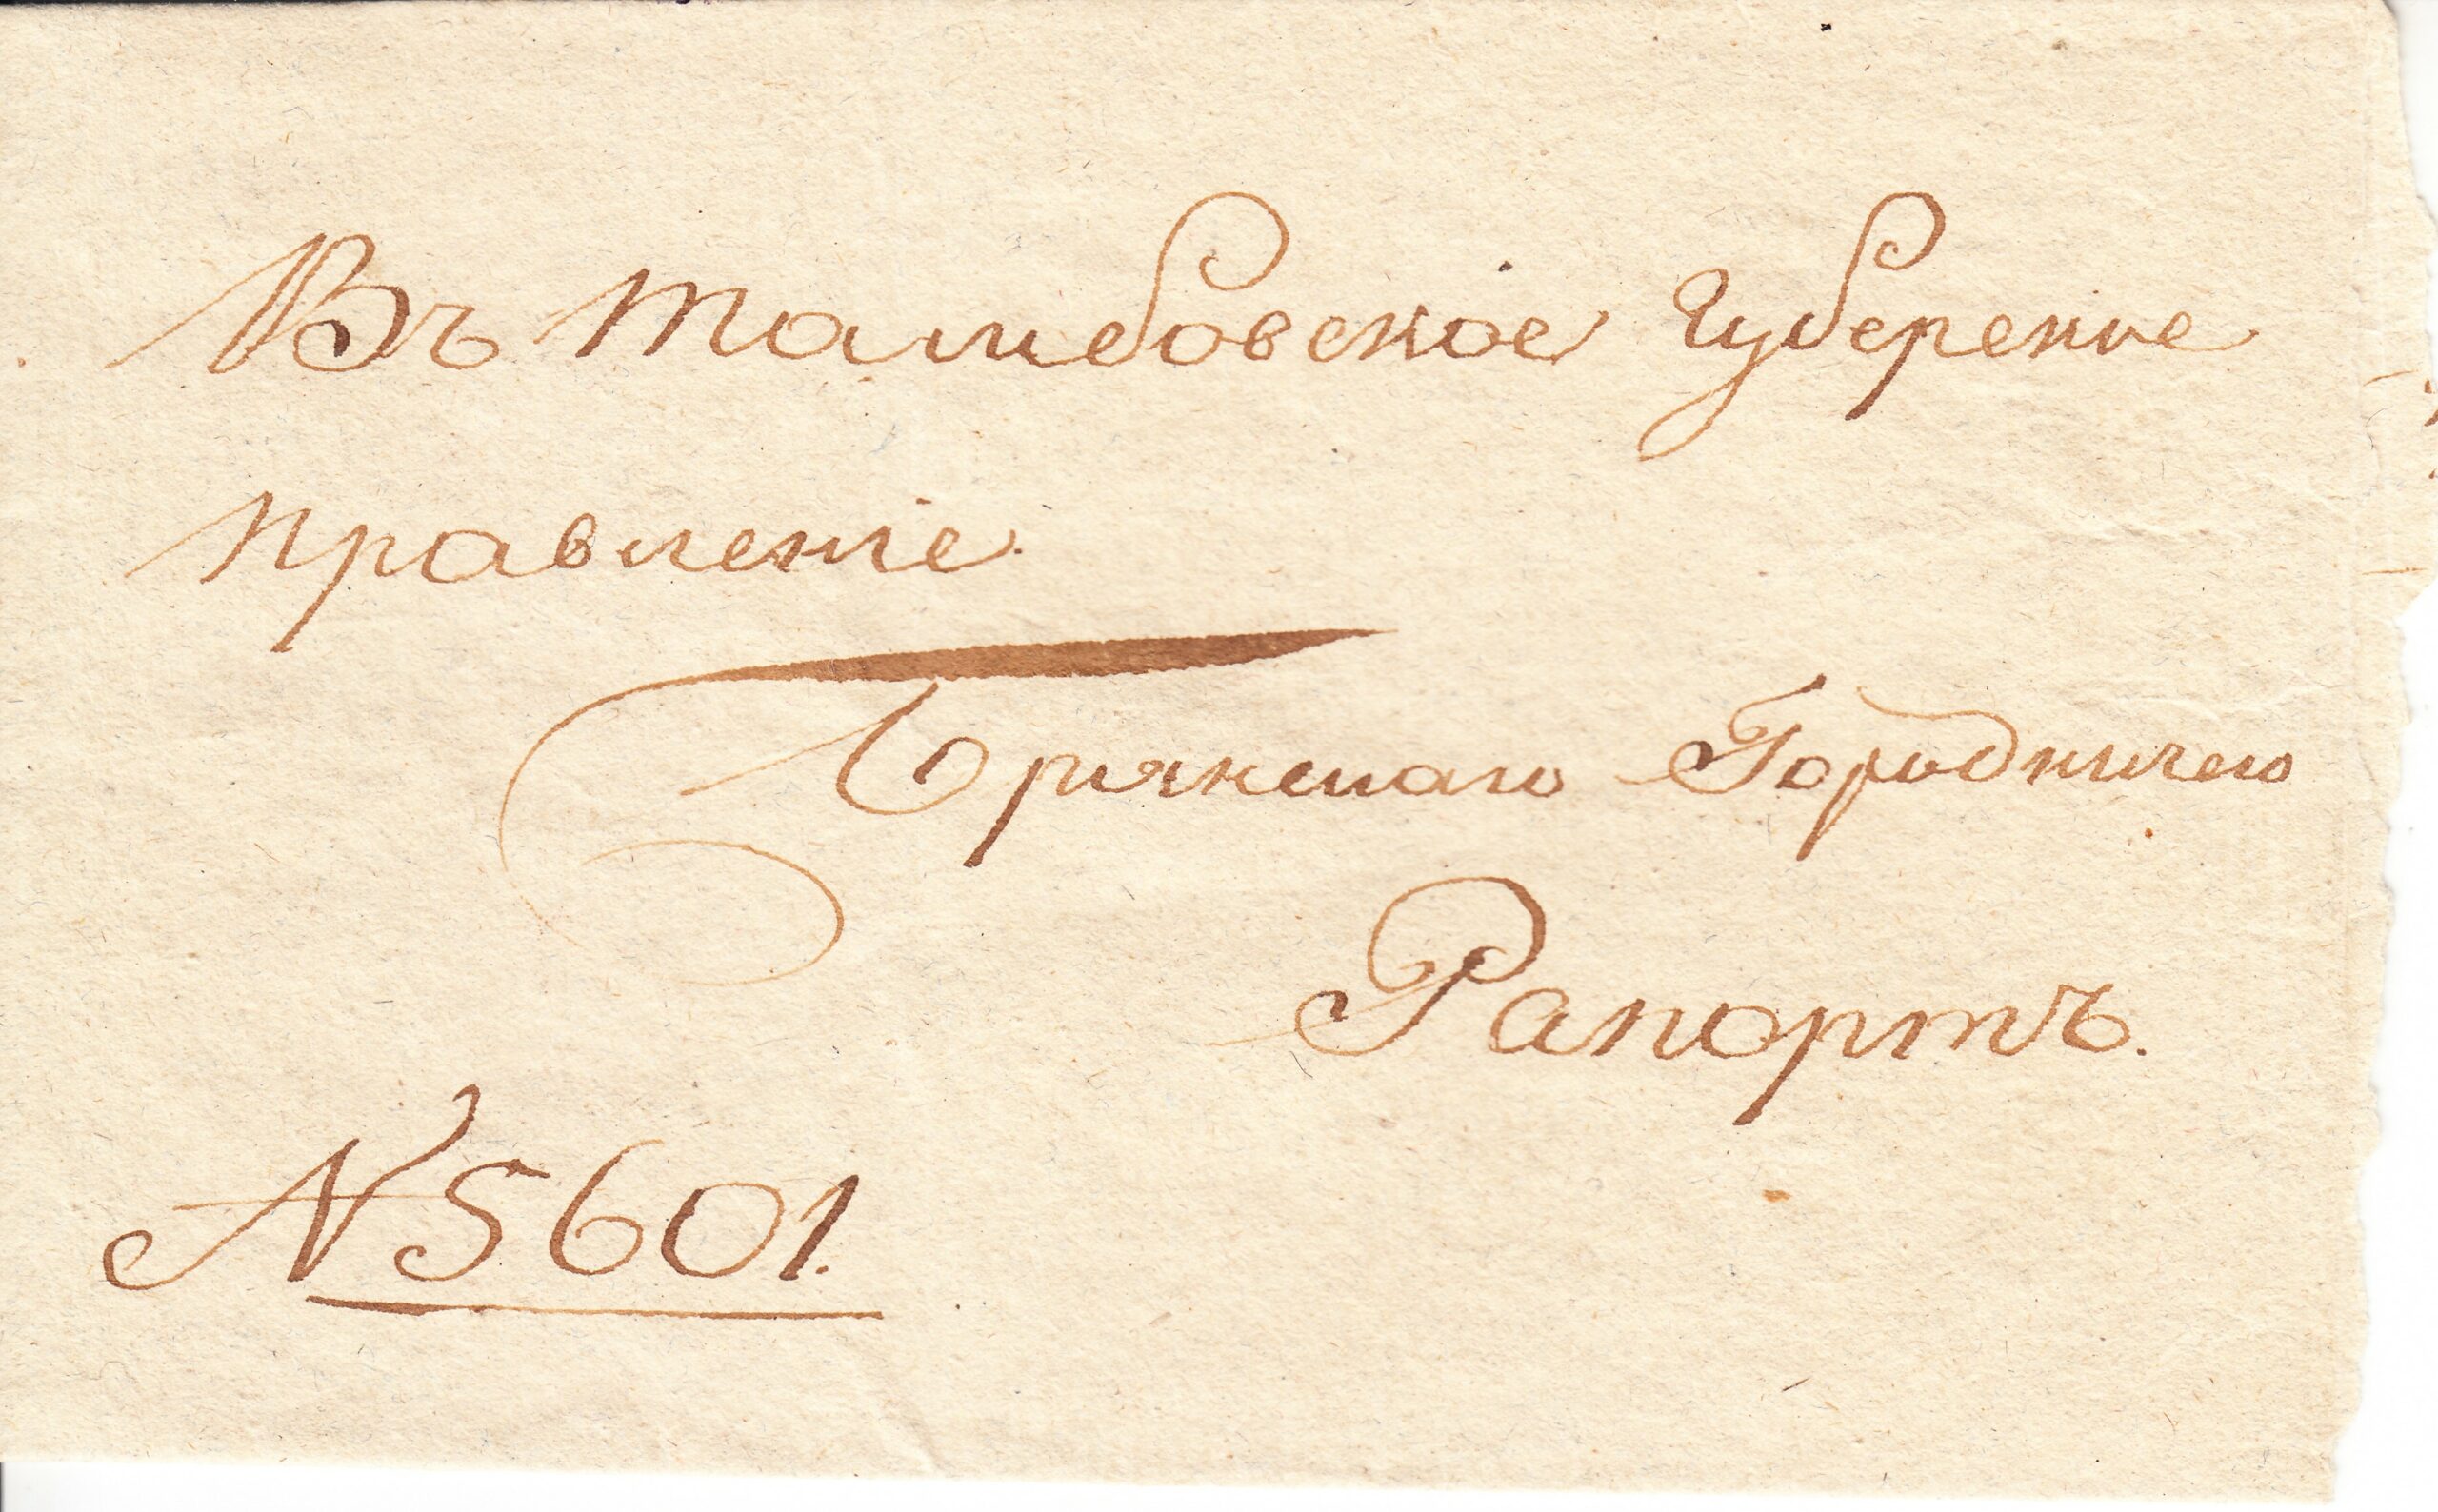 Въ тамбовское Губернское
правленіе.
Брянскаго Городничего
Рапортъ.
N 5601.